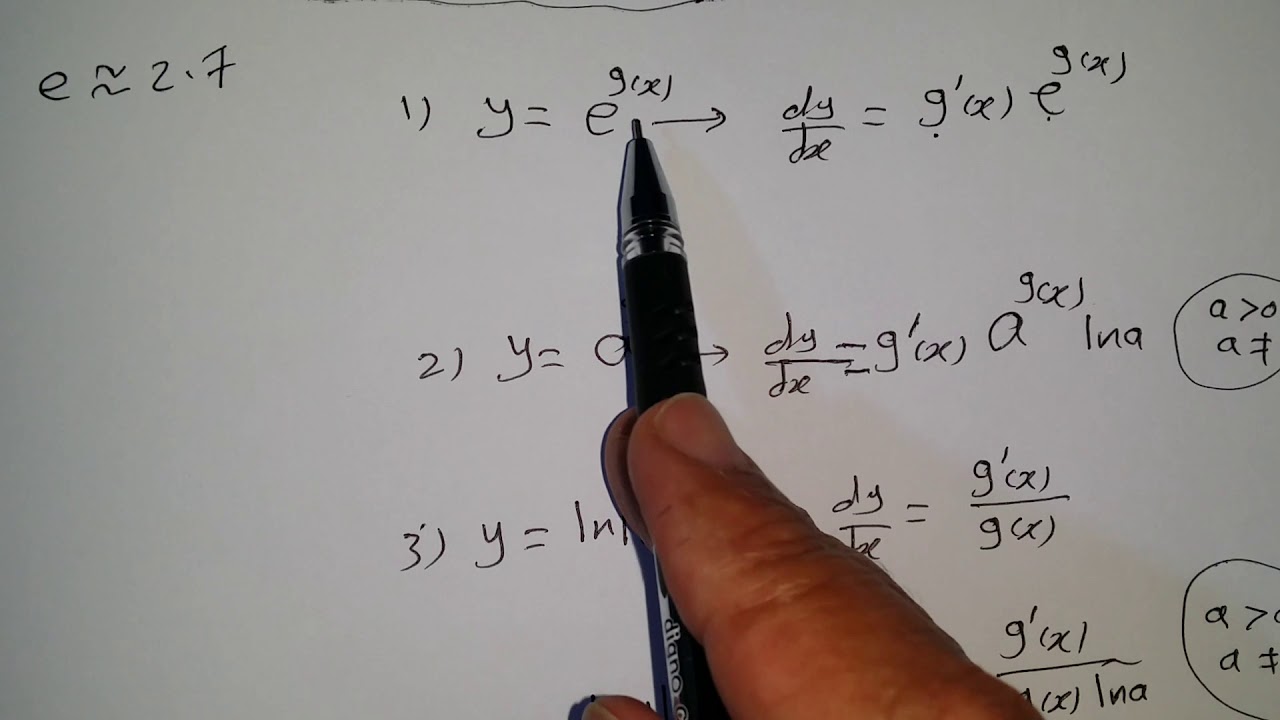 e ≈ 2.7
1) y = e^g(x) → dy/dx = g'(x) e^g(x)
2) y = a → dy/dx = g'(x) a^g(x) ln a
a > 0
a ≠
3) y = ln dy/dx = g'(x)/g(x)
g'(x)/g(x) ln a
a > 0
a ≠
diano